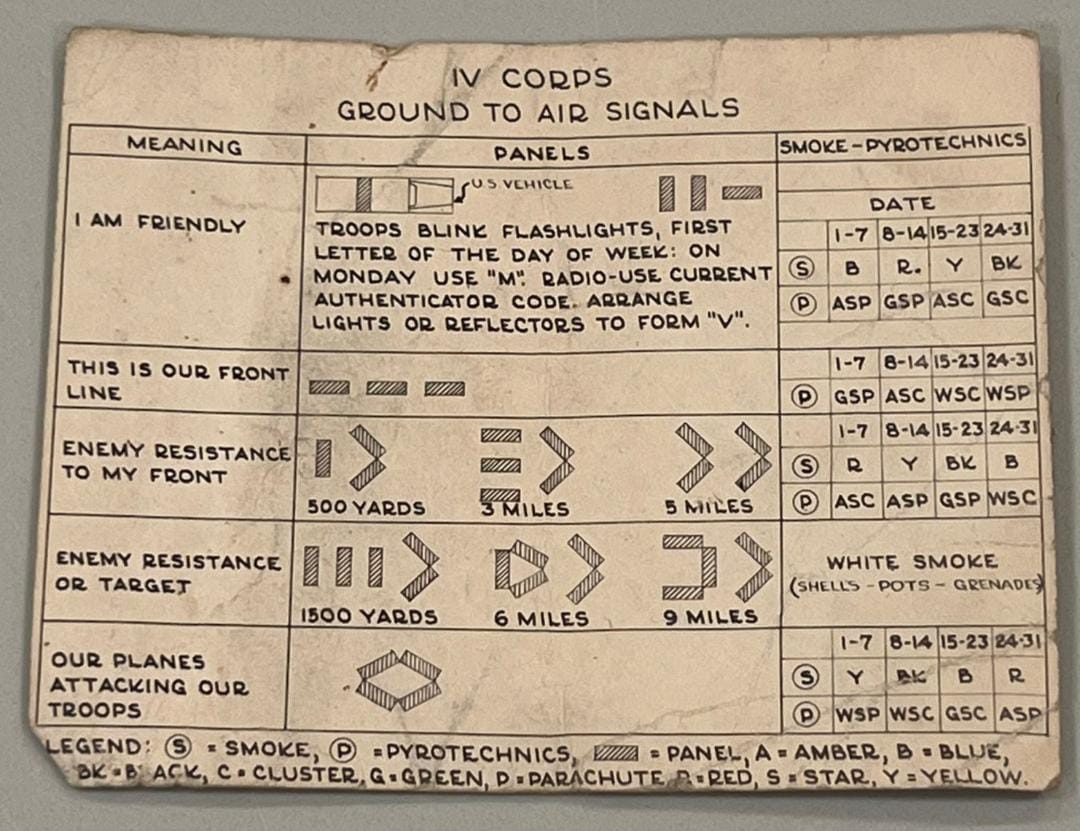 IV CORPS
GROUND TO AIR SIGNALS
MEANING PANELS SMOKE-PYROTECHNICS
I AM FRIENDLY
U.S. VEHICLE
TROOPS BLINK FLASHLIGHTS, FIRST
LETTER OF THE DAY OF WEEK: ON
MONDAY USE "M". RADIO-USE CURRENT
AUTHENTICATOR CODE. ARRANGE
LIGHTS OR REFLECTORS TO FORM "V".
DATE
1-7 8-14 15-23 24-31
S B R. Y BK
P ASP GSP ASC GSC
THIS IS OUR FRONT
LINE
1-7 8-14 15-23 24-31
P GSP ASC WSC WSP
ENEMY RESISTANCE
TO MY FRONT
500 YARDS 3 MILES 5 MILES
1-7 8-14 15-23 24-31
S R Y BK B
P ASC ASP GSP WSC
ENEMY RESISTANCE
OR TARGET
1500 YARDS 6 MILES 9 MILES
WHITE SMOKE
(SHELLS - POTS - GRENADES)
OUR PLANES
ATTACKING OUR
TROOPS
1-7 8-14 15-23 24-31
S Y BK B R
P WSP WSC GSC ASP
LEGEND: S = SMOKE, P = PYROTECHNICS, = PANEL, A = AMBER, B = BLUE,
BK = B ACK, C = CLUSTER, G = GREEN, P = PARACHUTE R = RED, S = STAR, Y = YELLOW.